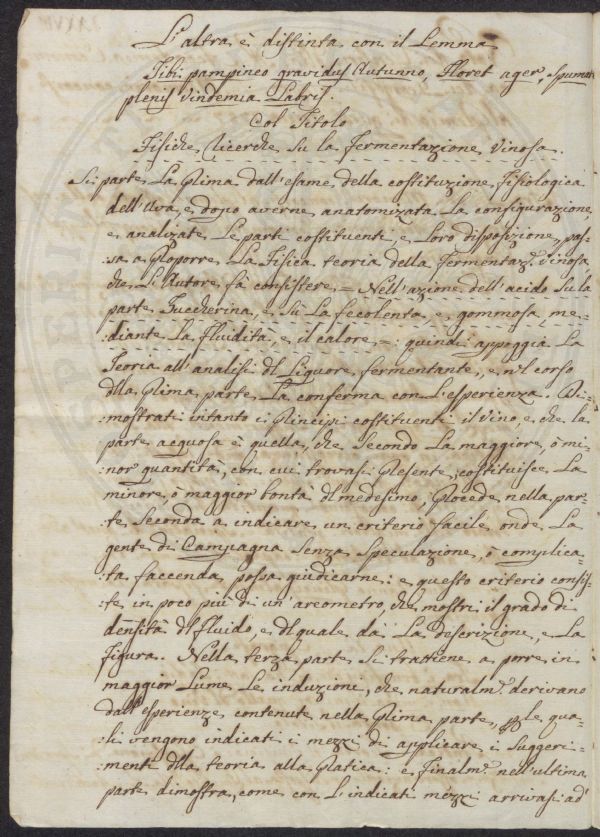 L'altra è distinta con il Lemma
Tibi pampineo gravidus Autunno, Floret ager, spumat
plenis vindemia Labris.
Col Titolo
Fisiche Ricerche su la Fermentazione vinosa.
Si parte La Prima dall'esame della costituzione Fisiologica
dell'Uva, e dopo averne anatomizata La configurazione,
e analizate Le parti costituenti, e Loro disposizione, pas-
sa a Proporre La Fisica teoria della Fermentaz.e Vinosa
che L'Autore fà consistere = Nell'azione dell'acido su la
parte Zuccherina, e sù La fecolenta, e gommosa, me-
diante La fluidità, e il calore =: quindi appoggia La
Teoria all'analisi dl Liquore fermentante, e nel corso
dlla Prima parte La conferma con L'esperienza. Di-
mostrati intanto i Principj costituenti il vino, e che la
parte acquosa è quella, che secondo La maggiore, ò mi-
nor quantità, con cui trovasi Presente, costituisce La
minore, ò maggior bontà dl medesimo Procede nella par-
:te seconda a indicare un criterio facile onde La
gente di Campagna senza speculazione, ò complica-
:ta faccenda possa giudicarne: e questo criterio consis-
:te in poco più di un'areometro, che mostri il grado di
densità dl Fluido, e dl quale dà La descrizione, e La
figura. Nella terza parte si trattiene a porre in
maggior Lume Le induzioni, che naturalm.e derivano
dall'esperienze contenute nella Prima parte, ple qua-
li vengono indicati i mezzi di applicare i suggeri-
:menti dlla teoria alla Pratica: e Finalm.e nell'ultima
parte dimostra, come con L'indicati mezzi arrivasi ad